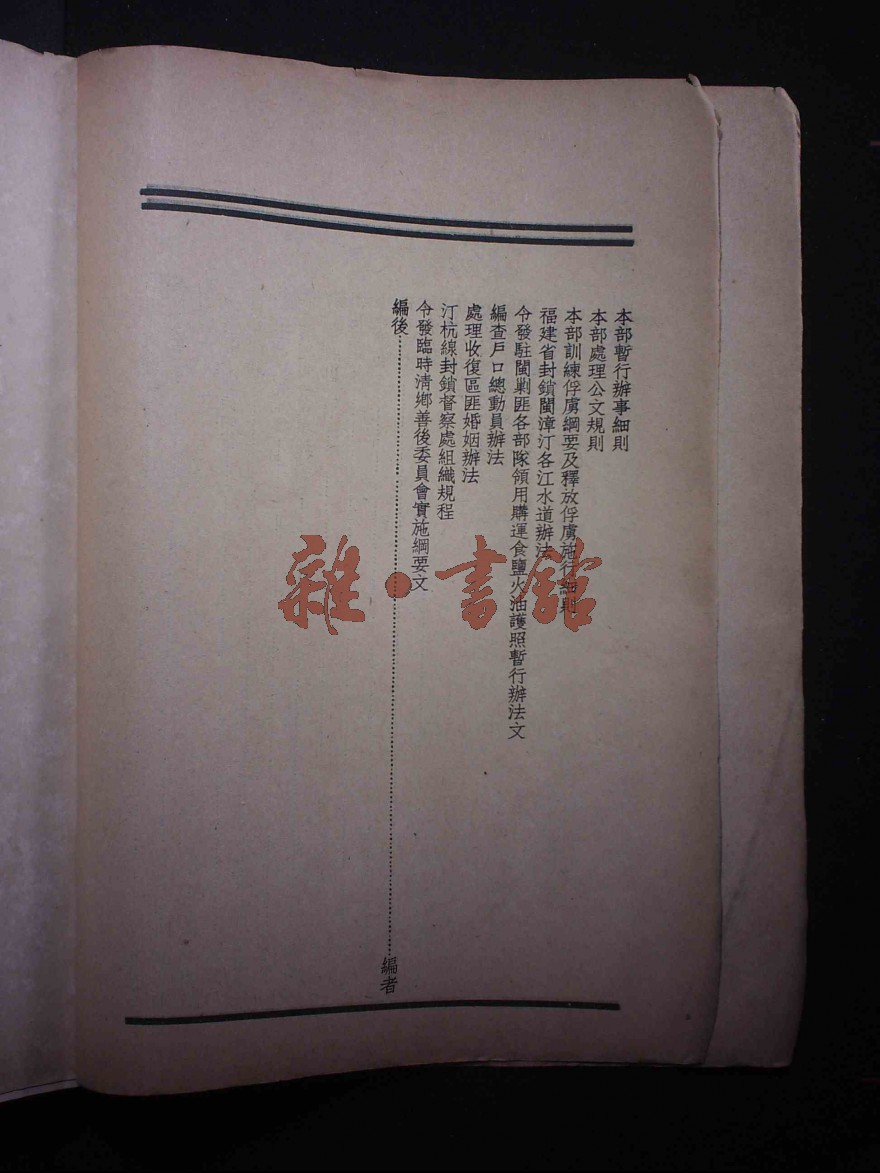 本部暫行辦事細則
本部處理公文規則
本部訓練俘虜綱要及釋放俘虜施行細則
福建省封鎖閩漳汀各江水道辦法
令發駐閩剿匪各部隊領用購運食鹽火油護照暫行辦法文
編查戶口總動員辦法
處理收復區匪婚姻辦法
汀杭線封鎖督察處組織規程
令發臨時清鄉善後委員會實施綱要文
編後……………………編者
雜·書館